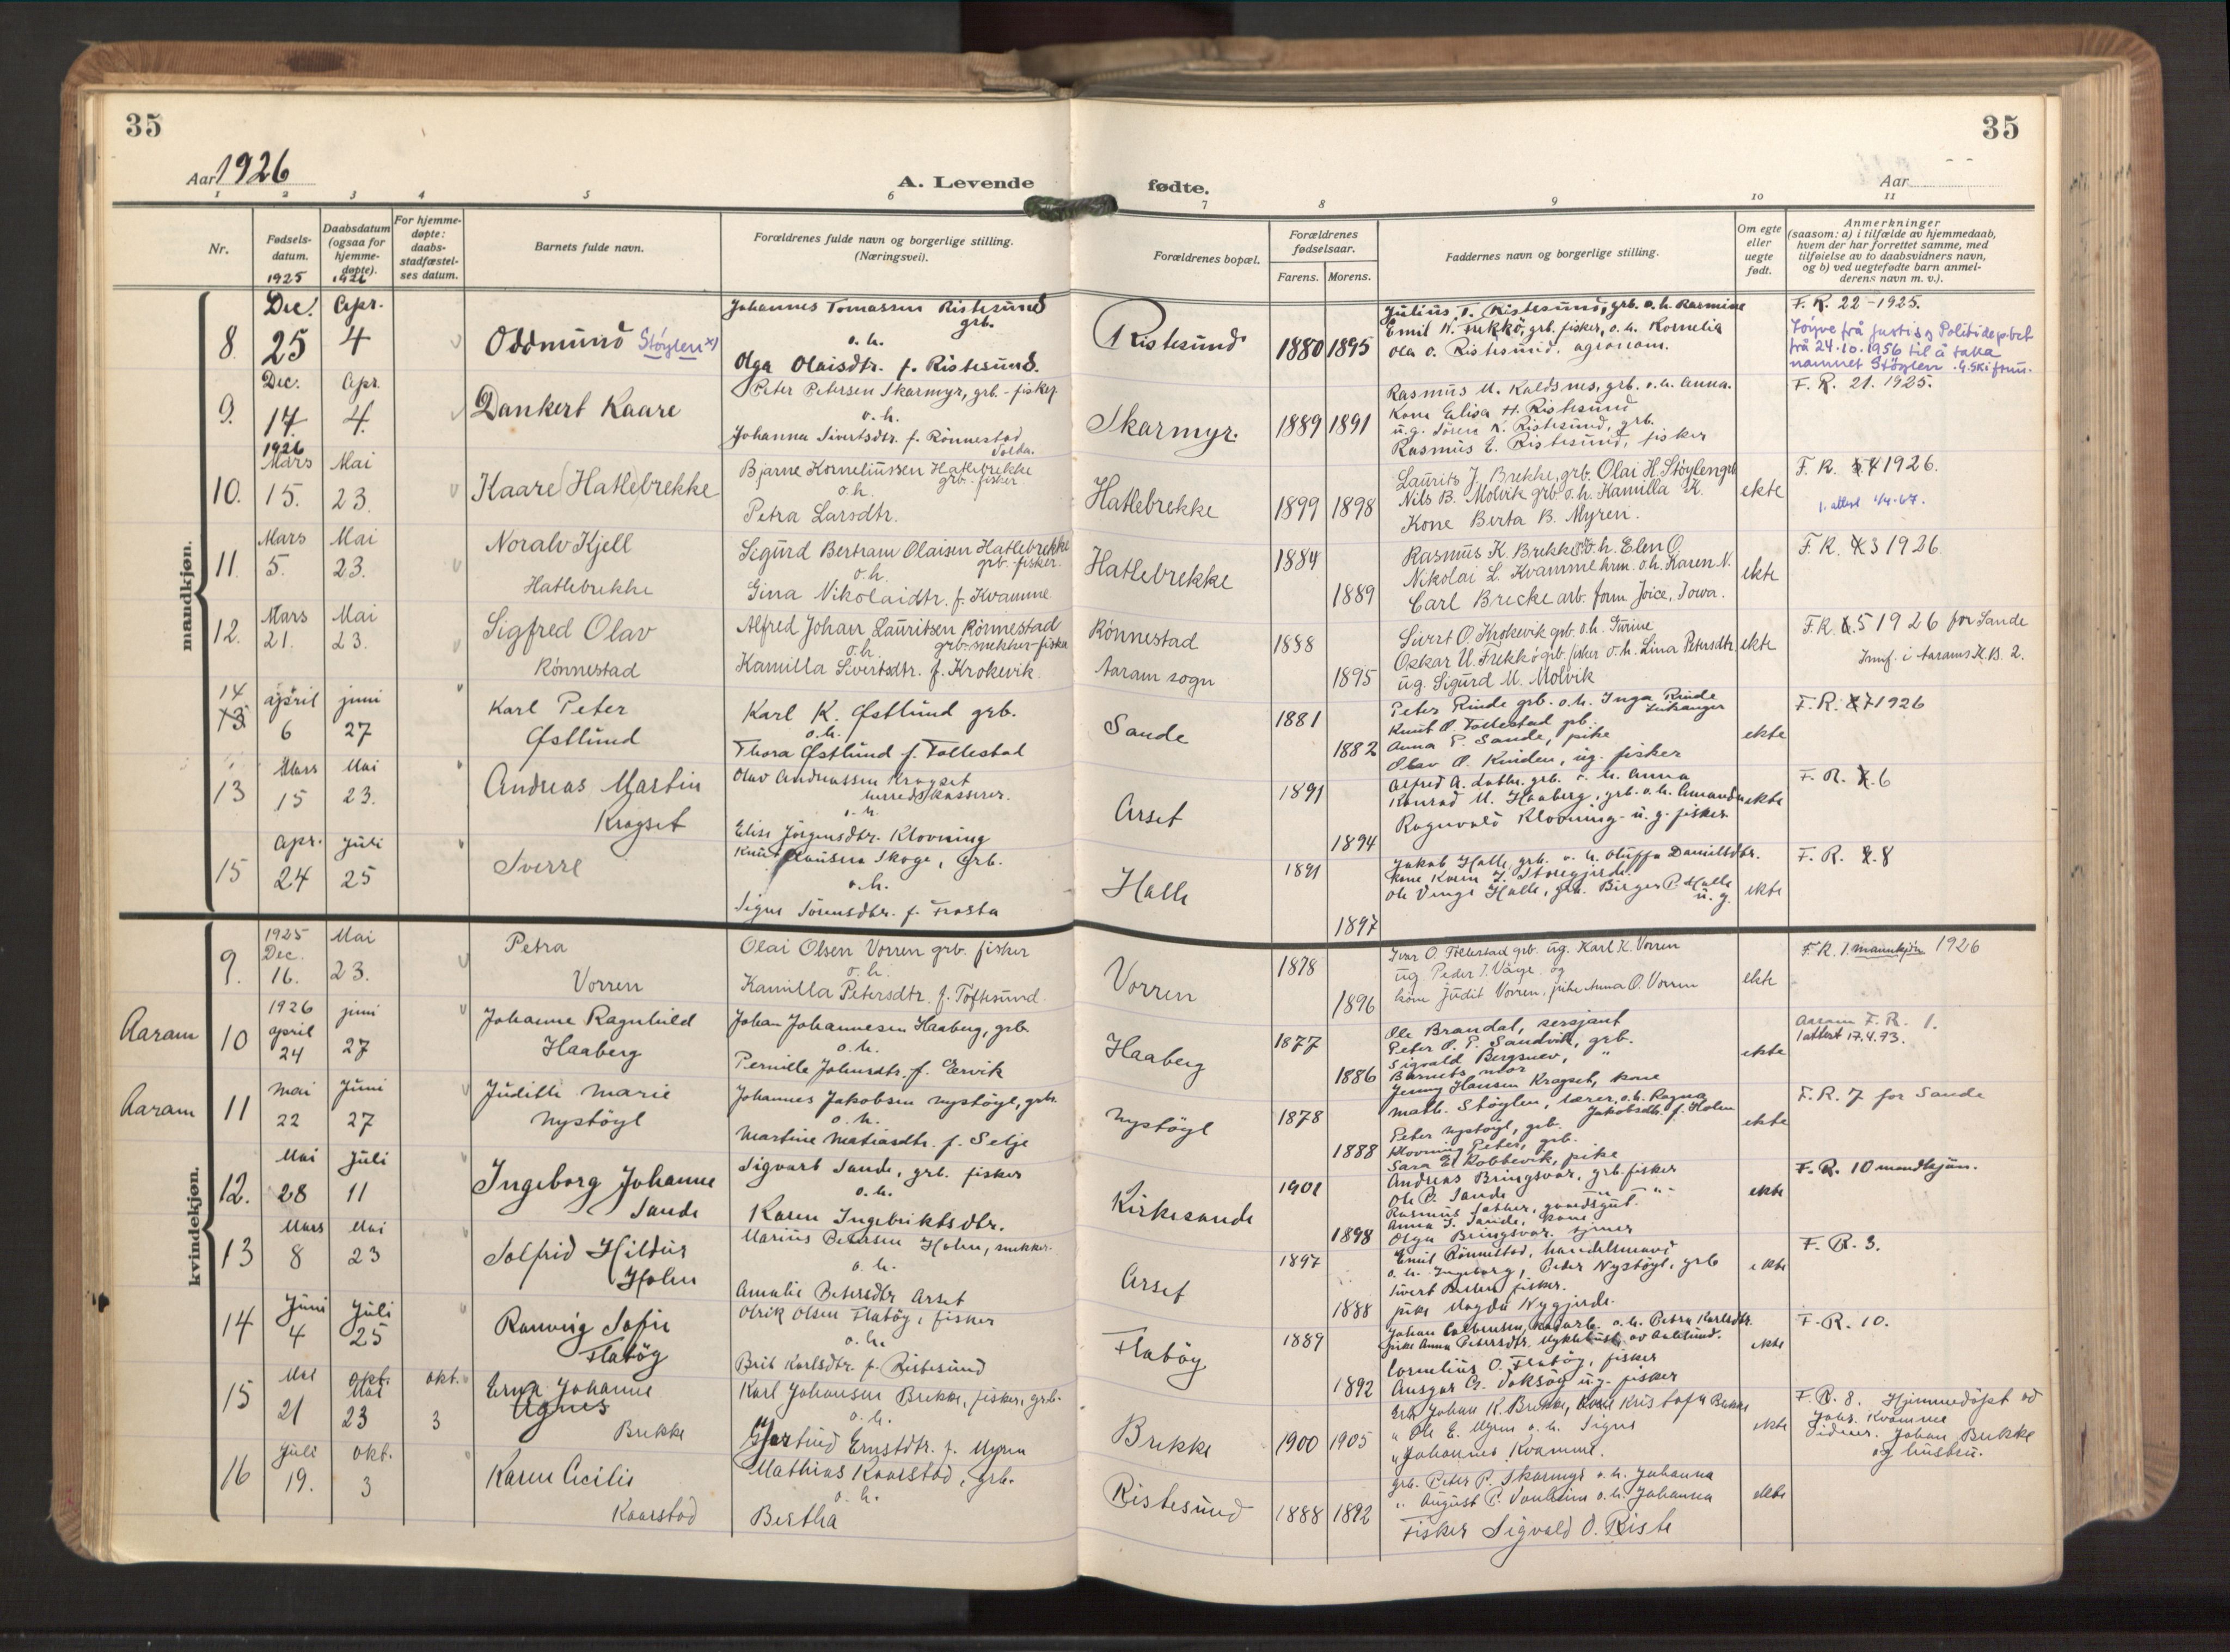 35
35
Aar 1926
A. Levende
fødte.
Aar
1
2
3
4
5
6
7
8
9
10
11
Nr.
Fødsels-
datum.
1925
Daabsdatum
(ogsaa for
hjemme-
døpte).
1926
For hjemme-
døpte:
daabs-
stadfæstel-
ses datum.
Barnets fulde navn.
Forældrenes fulde navn og borgerlige stilling.
(Næringsvei).
Forældrenes bopæl.
Forældrenes
fødselsaar.
Farens.
Morens.
Faddernes navn og borgerlige stilling.
Om egte
eller
uegte
født.
Anmerkninger
(saasom: a) i tilfælde av hjemmedaab,
hvem der har forrettet samme, med
tilføielse av to daabsvidners navn,
og b) ved uegtefødte barn anmel-
derens navn m. v.).
mandkjøn.
8
Dec.
25
Apr.
4
Oddmund Støylen x)
Johannes Tomassen Ristesund
grb.
o. h.
Olga Olaisdtr. f. Ristesund.
Ristesund
1880
1895
Julius T. Ristesund, grb. o. h. Rasmine
Emil N. Frekkö, grb. fisker, o. h. Kornelia
Ola O. Ristesund, agronom.
F. R. 22 - 1925.
Löyve frå Justis og Politidep.tet
frå 24.10.1956 til å taka
namnet Støylen.
9.
Dec.
14.
Apr.
4.
Dankert Kaare
Peter Petersen Skarmyr, grb. - fisker
o. h.
Johanna Sivertsdtr. f. Rönnestad
Skarmyr.
1889
1891
Rasmus M. Kaldsnes, grb. o. h. Anna.
Kone Elisa H. Ristesund
u.g. Sören K. Ristesund, grb.
Rasmus E. Ristesund, fisker
F. R. 21. 1925.
10.
1926
Mars
15.
Mai
23.
Kaare Hatlebrekke
Bjarne Korneliussen Hatlebrekke
grb. - fisker
o. h.
Petra Larsdtr.
Hatlebrekke
1899
1898
Laurits J. Brekke, grb. Olai H. Støylen grb
Nils B. Molvik grb o. h. Kamilla K.
Kone Berta B. Myren.
ekte
F. R. 4 1926.
1. attest 1/4-67.
11.
Mars
5.
Mai
23.
Noralv Kjell
Hatlebrekke
Sigurd Bertram Olaisen Hatlebrekke
grb. fisker.
o. h.
Gina Nikolaidtr. f. Kvamme
Hatlebrekke
1884
1889
Rasmus K. Brekke o. h. Elen O.
Nikolai L. Kvamme hrm. o. h. Karen N.
Carl Brecke arb. form. Joice, Iowa.
ekte
F. R. 3 1926.
12.
Mars
21.
Mai
23.
Sigfred Olav
Rönnestad
Alfred Johan Lauritsen Rönnestad
grb-snekker-fisker
o. h.
Kamilla Sivertsdtr. f. Krokevik.
Rönnestad
Aaram sogn
1888
1895
Sivert O. Krokevik grb. o. h. Gurine
Oskar U. Frekkö grb. fisker o. h. Lina Petersdtr.
ug. Sigurd M. Molvik
ekte
F. R. 5 1926 for Sande
Innf. i Aarams K.B. 2.
14
13
april
6
juni
27
Karl Peter
Østlund
Karl K. Østlund grb.
o. h.
Thora Østlund f. Tollestad
Sande
1881
1882
Peter Rinde grb. o. h. Inga Rinde
Leikanger
Knut O. Tollestad grb.
Anna P. Sande, pike
Olav O. Kinden, ug. fisker
ekte
F. R. 7 1926
13
Mars
15
Mai
23.
Andreas Martin
Kragset
Olav Andreassen Kragset
herredskasserer.
o. h.
Elise Jörgensdtr. Klovning
Arset
1891
1894
Alfred A. grb. o. h. Anna
Konrad M. Haaberg, grb. o. h. Amanda
Ragnvald Klovning - u. g. fisker.
ekte
F. R. 6
15
Apr.
24
Juli
25
Sverre
Knut Skoge, Grb.
o. h.
Signe Sörensdtr. f. Frosta
Halle
1891
1897
Jakob Halle, grb. o. h. Oluffa Danielsdtr.
Kone Karen J. Storegjerde.
Ole Vinge Halle, grb. Birger P. Halle
u. g.
ekte
F. R. 8
kvindekjøn.
9.
1925
Dec.
16.
Mai
23.
Petra
Vorren
Olai Olsen Vorren grb. fisker
o. h.
Kamilla Petersdtr. f. Töftesund.
Vorren
1878
1896
Ivar O. Tollestad grb. ug. Karl K. Vorren
ug Peder J. Våge og
kone Judit Vorren, pike Anna O. Vorren
ekte
F. R. 1. mannkjön 1926
Aaram
10
1926
april
24
juni
27
Johanne Ragnhild
Haaberg
Johan Johannesen Haaberg, grb.
o. h.
Pernille Johnsdtr. f. Ervik
Haaberg
1877
1886
Ole Brandal, sersjant
Peter O. P. Sandvik, grb.
Sigvald Bergsnev, "
Barnets mor
Jenny Hansen Kragset, kone
ekte
Aaram F. R. 1.
1 attest 17.4.73.
Aaram
11
mai
22
Juni
27
Judith Marie
Nystöyl
Johannes Jakobsen Nystöyl, grb.
o. h.
Martine Matiasdtr. f. Selje
Nystöyl
1878
1888
Math. Støylen, lærer, o. h. Ragna
Jakobsdtr. f. Holen
Peter Nystöyl, grb.
Klovning Peter, grb.
Sara E. Robbevik, pike
ekte
F. R. 7 for Sande
12.
Mai
28
Juli
11
Ingeborg Johanne
Sande
Sigvart Sande, grb. fisker
o. h.
Karen Ingebriktsdtr.
Kirkesande
1901
1898
Andreas Bringsvor, grb. fisker
Ole P. Sande " - " -
Rasmus Sæther,
Anna J. Sande, kone
Olga Bringsvor,
ekte
F. R. 10 mandkjön.
13
Mars
8
Mai
23
Solfrid Hildur
Holen
Marius Petersen Holen, snekker.
o. h.
Amalie Petersdtr Arset
Arset
1897
1888
Emil Rönnestad, handelsmand
o. h. Ingeborg, Peder Nystöyl, grb
Sivert fisker.
pike Magda Nygjerde.
ekte
F. R. 3.
14
Juni
4
Juli
25
Ranveig Sofie
Flatöy
Olrik Olsen Flatöy, fisker
o. h.
Brit Karlsdtr. f. Ristesund
Flatöy
1889
1892
Johan o. h. Petra Karlsdtr.
pike Anna Petersdtr. Myklebust av Aalesund.
Cornelius O. Flatöy, fisker
Ansgar G. Voksöy u.g. fisker
ekte
F. R. 10.
15
Mai
21
okt.
Mai
23
okt.
3
Erna Johanne
Agnes
Brekke
Karl Johansen Brekke, fisker, grb.
o. h.
Gjertrud Ernstdtr. f. Myren
Brekke
1900
1905
Grb. Johan K. Brekke, Kone Kristofa Brekke
" Ole E. Myren o. h. Signe
" Johannes Kvamme.
ekte
F. R. 8. Hjemmedöpt av
Johs. Kvamme
Vidner. Johan Brekke
og hustru.
16
Juli
19.
okt.
3
Karen Cecilie
Kaarstad
Mathias Kaarstad, grb.
o. h.
Bertha
Ristesund
1888
1892
grb. Peter P. Skarmyr o. h. Johanna
" August P. Vonheim o. h. Johanna
Fisker Sigvald O. Riste
ekte